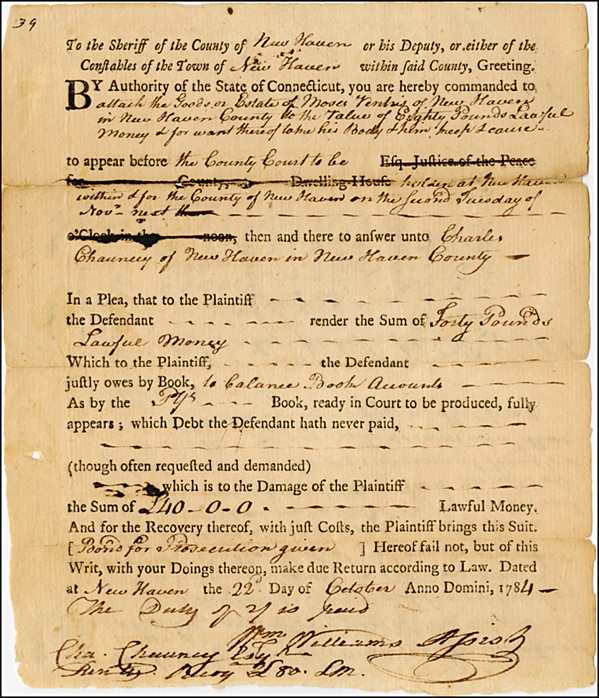 39
To the Sheriff of the County of New Haven or his Deputy, or either of the
Conſtables of the Town of New Haven within ſaid County, Greeting.
BY Authority of the State of Connecticut, you are hereby commanded to
attach the Goods or Estate of Moses Ventris of New Haven
in New Haven County to the Value of Eighty Pounds Lawful
Money & for want thereof take his Body & him keep & cause
to appear before the County Court to be Eſq. Juſtice of the Peace
for County, Dwelling-Houſe holden at New Haven
within & for the County of New Haven on the second Tuesday of
Novr next
o'Clock in the noon, then and there to anſwer unto Charles
Chauncey of New Haven in New Haven County
In a Plea, that to the Plaintiff
the Defendant render the Sum of Forty Pounds
Lawful Money
Which to the Plaintiff, the Defendant
juſtly owes by Book, to balance Book Accounts
As by the Plfs Book, ready in Court to be produced, fully
appears; which Debt the Defendant hath never paid,
(though often requeſted and demanded)
which is to the Damage of the Plaintiff
the Sum of £40-0-0 Lawful Money.
And for the Recovery thereof, with juſt Coſts, the Plaintiff brings this Suit.
[ Bond for Prosecution given ] Hereof fail not, but of this
Writ, with your Doings thereon, make due Return according to Law. Dated
at New Haven the 22d Day of October Anno Domini, 1784
The Duty of 2/ is paid
Wm Williams Assist
Cha. Chauncey Esq
Recog £80. LM.